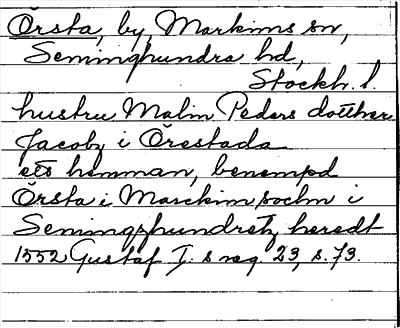 Örsta, by, Markims sn,
Seminghundra hd,
Stockh. l.
hustru Malin Peders dotther
Jacobz i Örestada
ets hemman, benempd
Örsta i Marckim sochn i
Semingzhundretz heredt
1552 Gustaf I. s reg 23, s. 73.